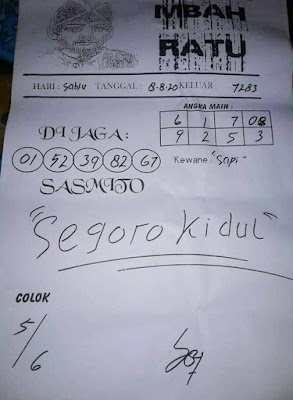 MBAH
RATU
HARI : Sabtu TANGGAL : 8-8-20 KELUAR : 7283
ANGKA MAIN :
6 1 7 08
9 2 5 3
DI JAGA :
01 52 39 82 67
Kewane : "Sapi"
SASMITO
"Segoro Kidul"
COLOK
5/6